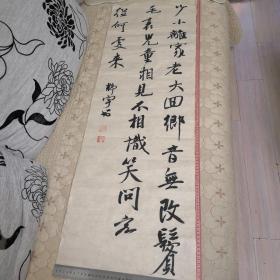 少小離家老大回鄉音無改鬢
毛衰兒童相見不相識笑問客
從何處來